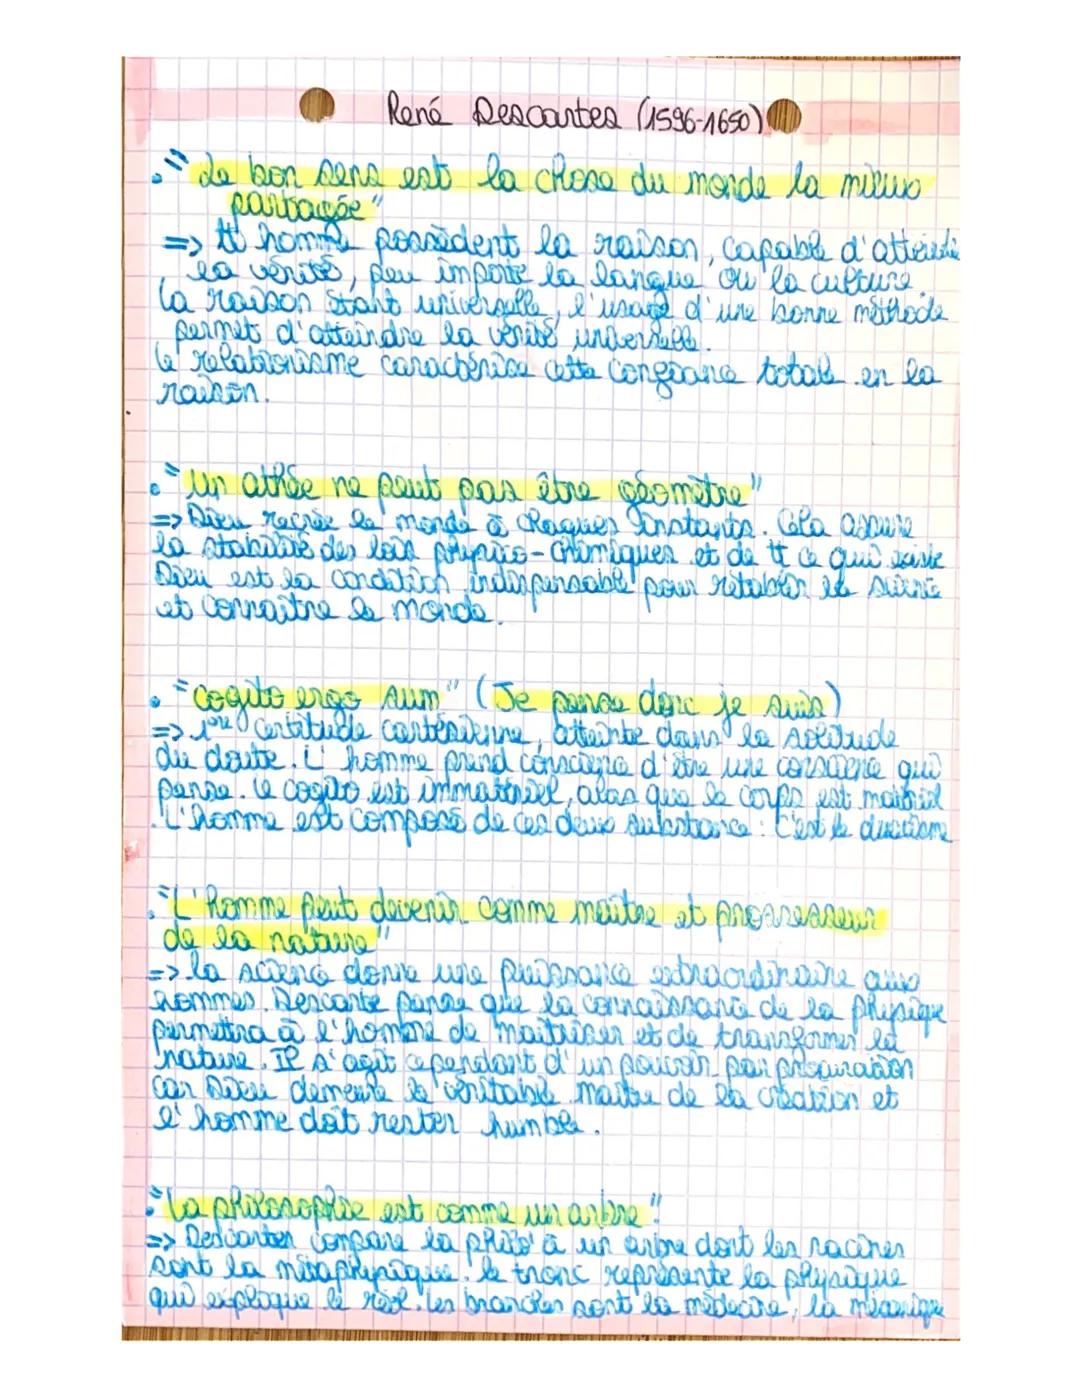 René Descartes (1596-1650)
. "Le bon sens est la chose du monde la mieux
partagée"
=> tt homme possèdent la raison, capable d'atteindre
la vérité, peu importe la langue ou la culture
la raison étant universelle, l'usage d'une bonne méthode
permet d'atteindre la vérité universelle.
le relationisme caractérise cette confiance totale en la
raison.
. "un athée ne peut pas être géomètre"
=> Dieu recrée le monde à chaques instants. Cela assure
la stabilité des lois physico-chimiques et de tt ce qui existe
Dieu est la condition indispensable pour rétablir la science
et connaître le monde.
. "cogito ergo sum" (Je pense donc je suis)
=> 1ère certitude cartésienne, atteinte dans la solitude
du doute. L'homme prend conscience d'être une conscience qui
pense. le cogito est immatériel, alors que le corps est matériel
. L'homme est composé de ces deux substance : c'est le dualisme
. "L'homme peut devenir comme maître et possesseur
de la nature"
=> la science donne une puissance extraordinaire aux
hommes. Descarte pense que la connaissance de la physique
permettra à l'homme de maîtriser et de transformer la
nature. Il s'agit cependant d'un pouvoir par procuration
car Dieu demeure le véritable maître de la création et
l'homme doit rester humble.
. "La philosophie est comme un arbre"
=> Descartes compare la philo à un arbre dont les racines
sont la métaphysique. le tronc représente la physique
qui explique le réel. les branches sont la médecine, la mécanique